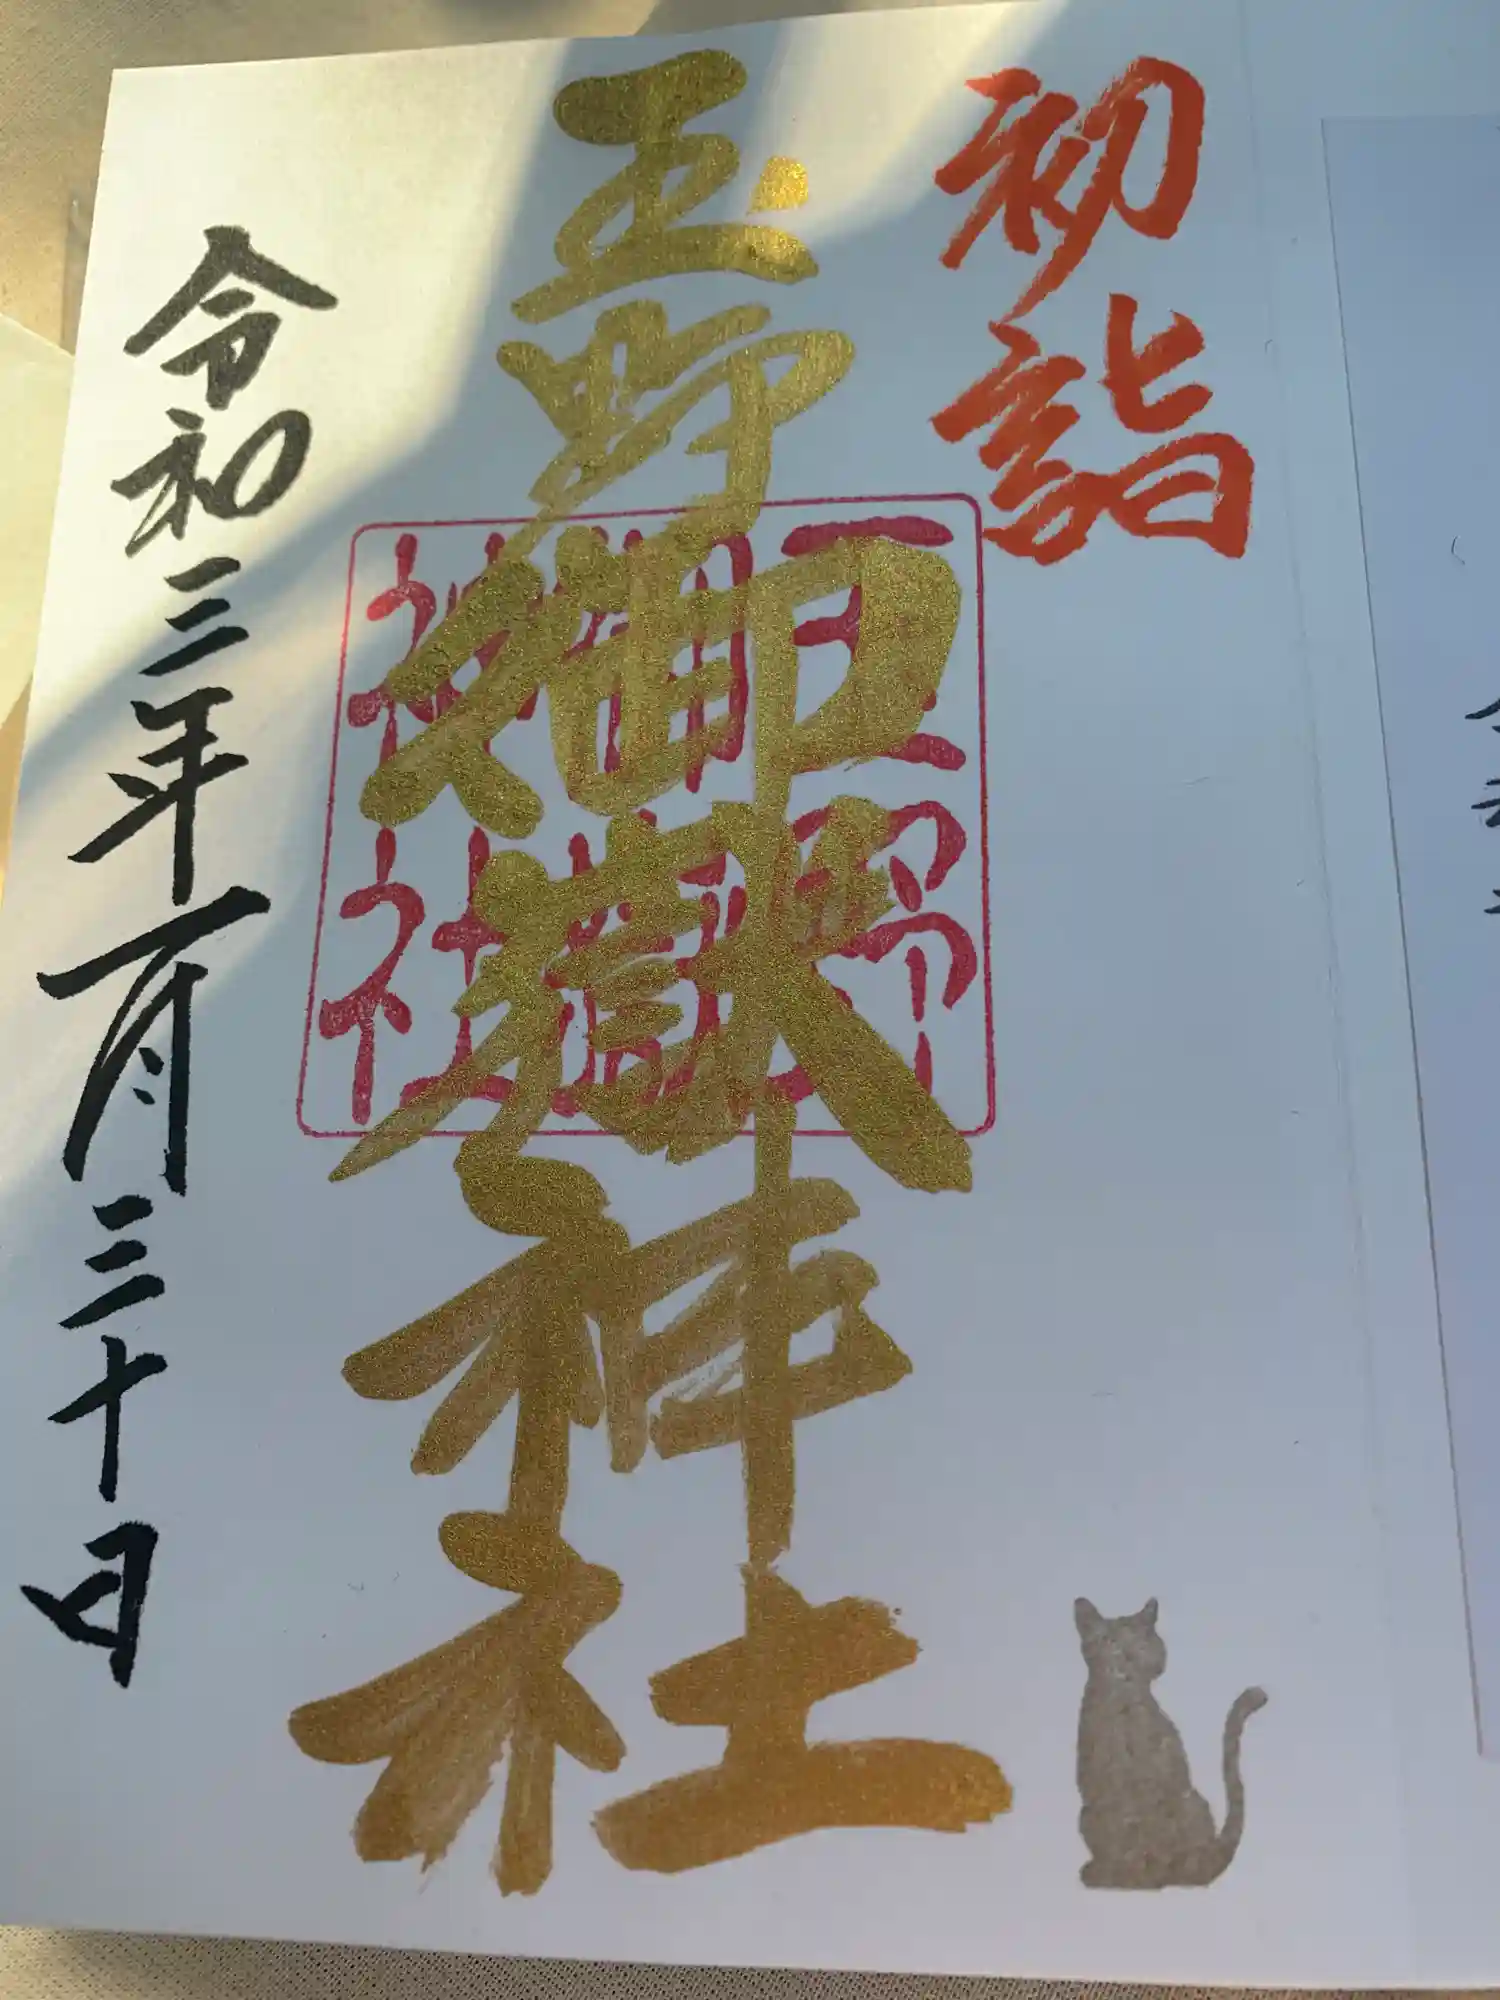 初詣
玉野御嶽神社
玉野
御嶽
神社
令和三年一月三十日